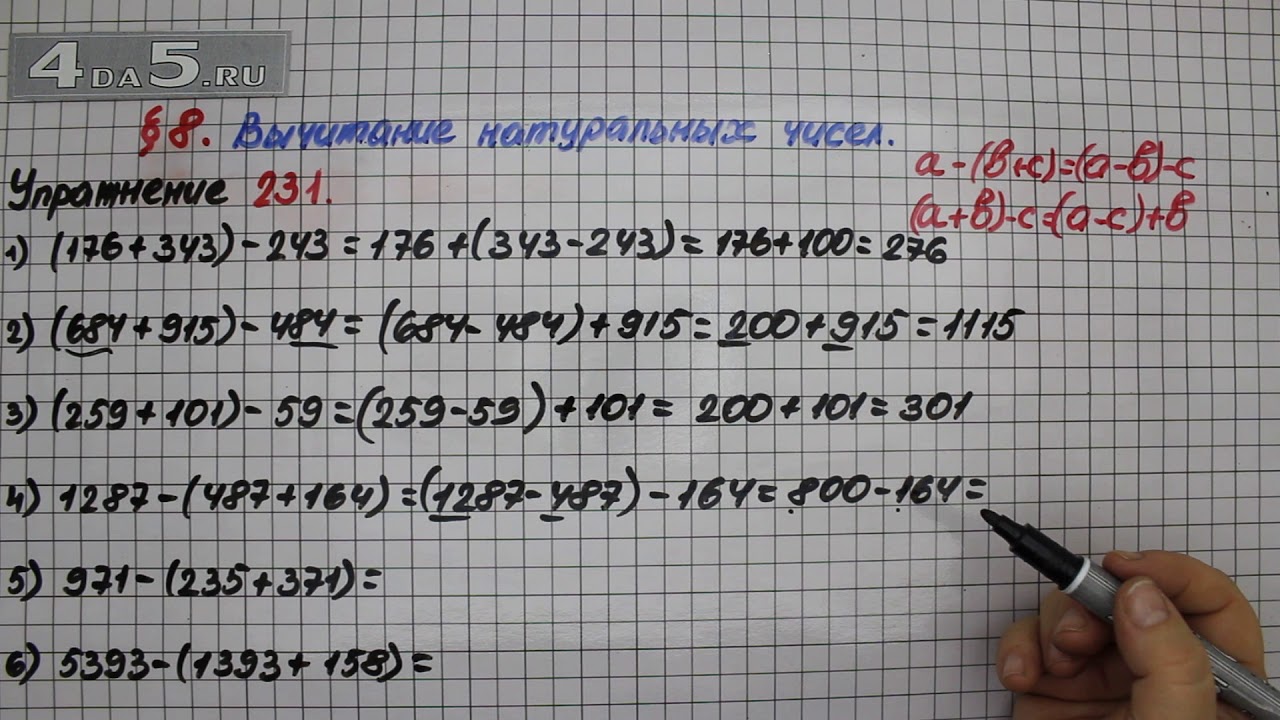 4DA5.RU
§ 8. Вычитание натуральных чисел.
a-(в+c)=(a-в)-c
Упражнение 231.
(a+в)-c=(a-c)+в
1) (176+343)-243=176+(343-243)=176+100=276
2) (684+915)-484=(684-484)+915=200+915=1115
3) (259+101)-59=(259-59)+101=200+101=301
4) 1287-(487+164)=(1287-487)-164=800-164=
5) 971-(235+371)=
6) 5393-(1393+158)=